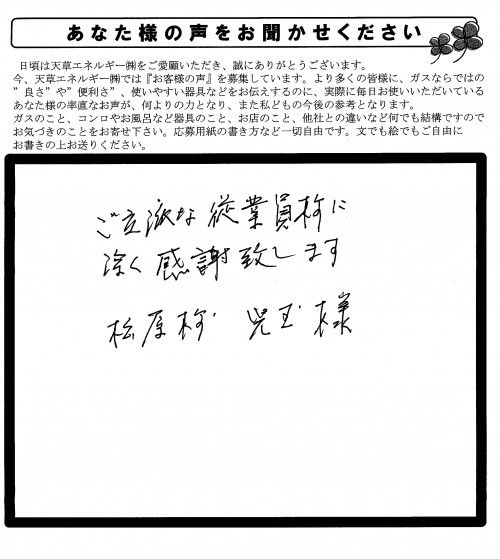 あなた様の声をお聞かせください
日頃は天草エネルギー㈱をご愛願いただき、誠にありがとうございます。
今、天草エネルギー㈱では『お客様の声』を募集しています。より多くの皆様に、ガスならではの
”良さ”や”便利さ”、使いやすい器具などをお伝えするのに、実際に毎日お使いいただいている
あなた様の率直なお声が、何よりの力となり、また私どもの今後の参考となります。
ガスのこと、コンロやお風呂など器具のこと、お店のこと、他社との違いなど何でも結構ですので
お気づきのことをお寄せ下さい。応募用紙の書き方など一切自由です。文でも絵でもご自由に
お書きの上お送りください。
ご立派な従業員様に
深く感謝致します
松原様 児玉様